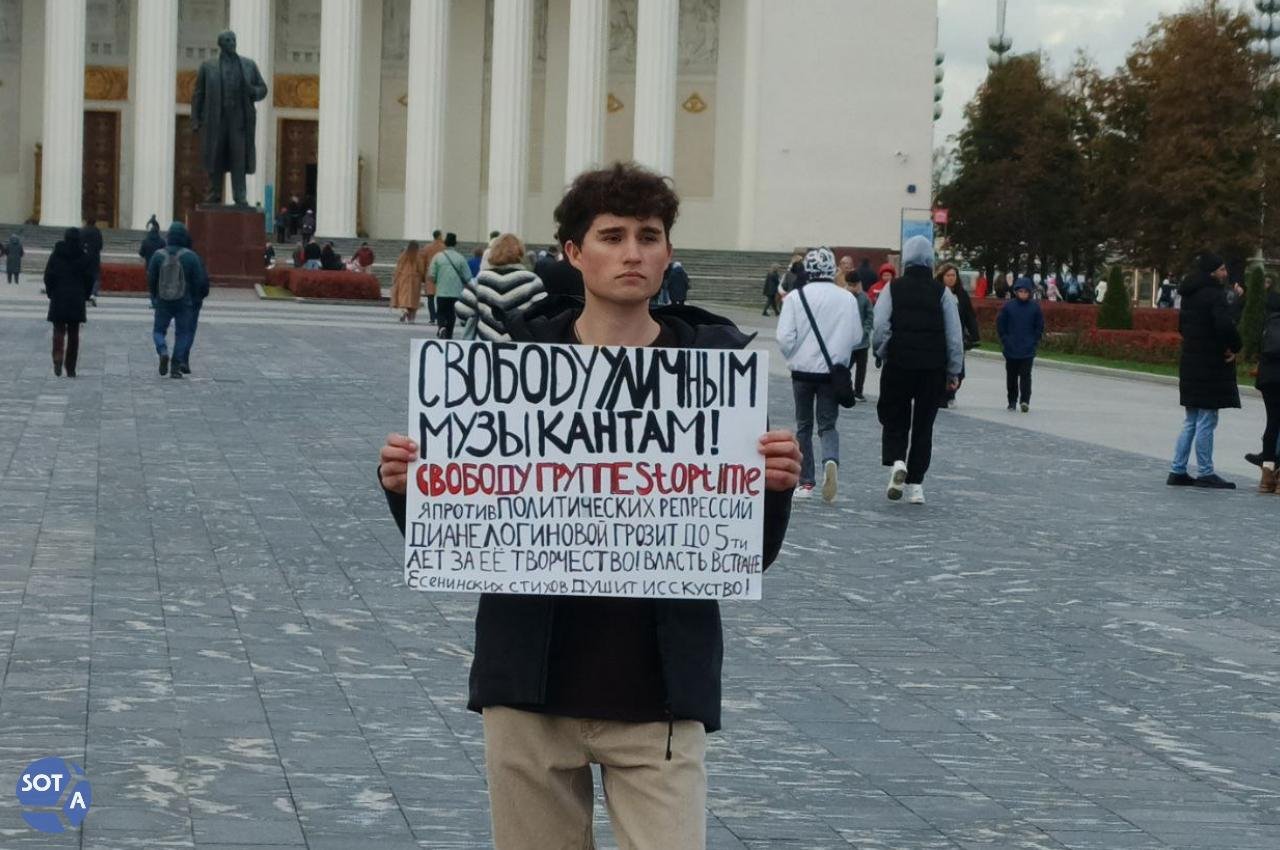 СВОБОДУ УЛИЧНЫМ
МУЗЫКАНТАМ!
СВОБОДУ ГРУППЕ Stoptime
Я ПРОТИВ ПОЛИТИЧЕСКИХ РЕПРЕССИЙ
ДИАНЕ ЛОГИНОВОЙ ГРОЗИТ ДО 5ти
ЛЕТ ЗА ЕЁ ТВОРЧЕСТВО! ВЛАСТЬ В СТРАНЕ
Есенинских стихов ДУШИТ ИССКУСТВО!
SOTA